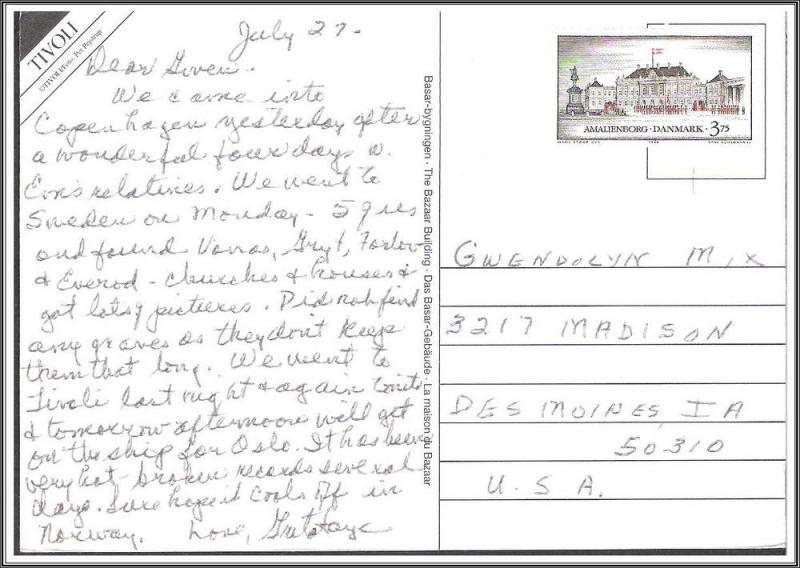 TIVOLI
©TIVOLI/Foto: Per Pejstrup
July 27-
Dear Gwen-
We came into
Copenhagen yesterday after
a wonderful four days w.
relatives. We went to
Sweden on Monday - 5 of us
and found Vanas, Gryt,
& Everod - churches & houses &
got lots of pictures. Did not find
any graves as they don't keep
them that long. We went to
Tivoli last night & again tonite
& tomorrow afternoon we'll get
on the ship for Oslo. It has been
very hot - broken records several
days. Sure hope it cools off in
Norway. Love,
Basar-bygningen · The Bazaar Building · Das Basar-Gebäude · La maison du Bazaar
AMALIENBORG · DANMARK · 3.75
GWENDOLYN MIX
3217 MADISON
DES MOINES, IA
50310
U.S.A.